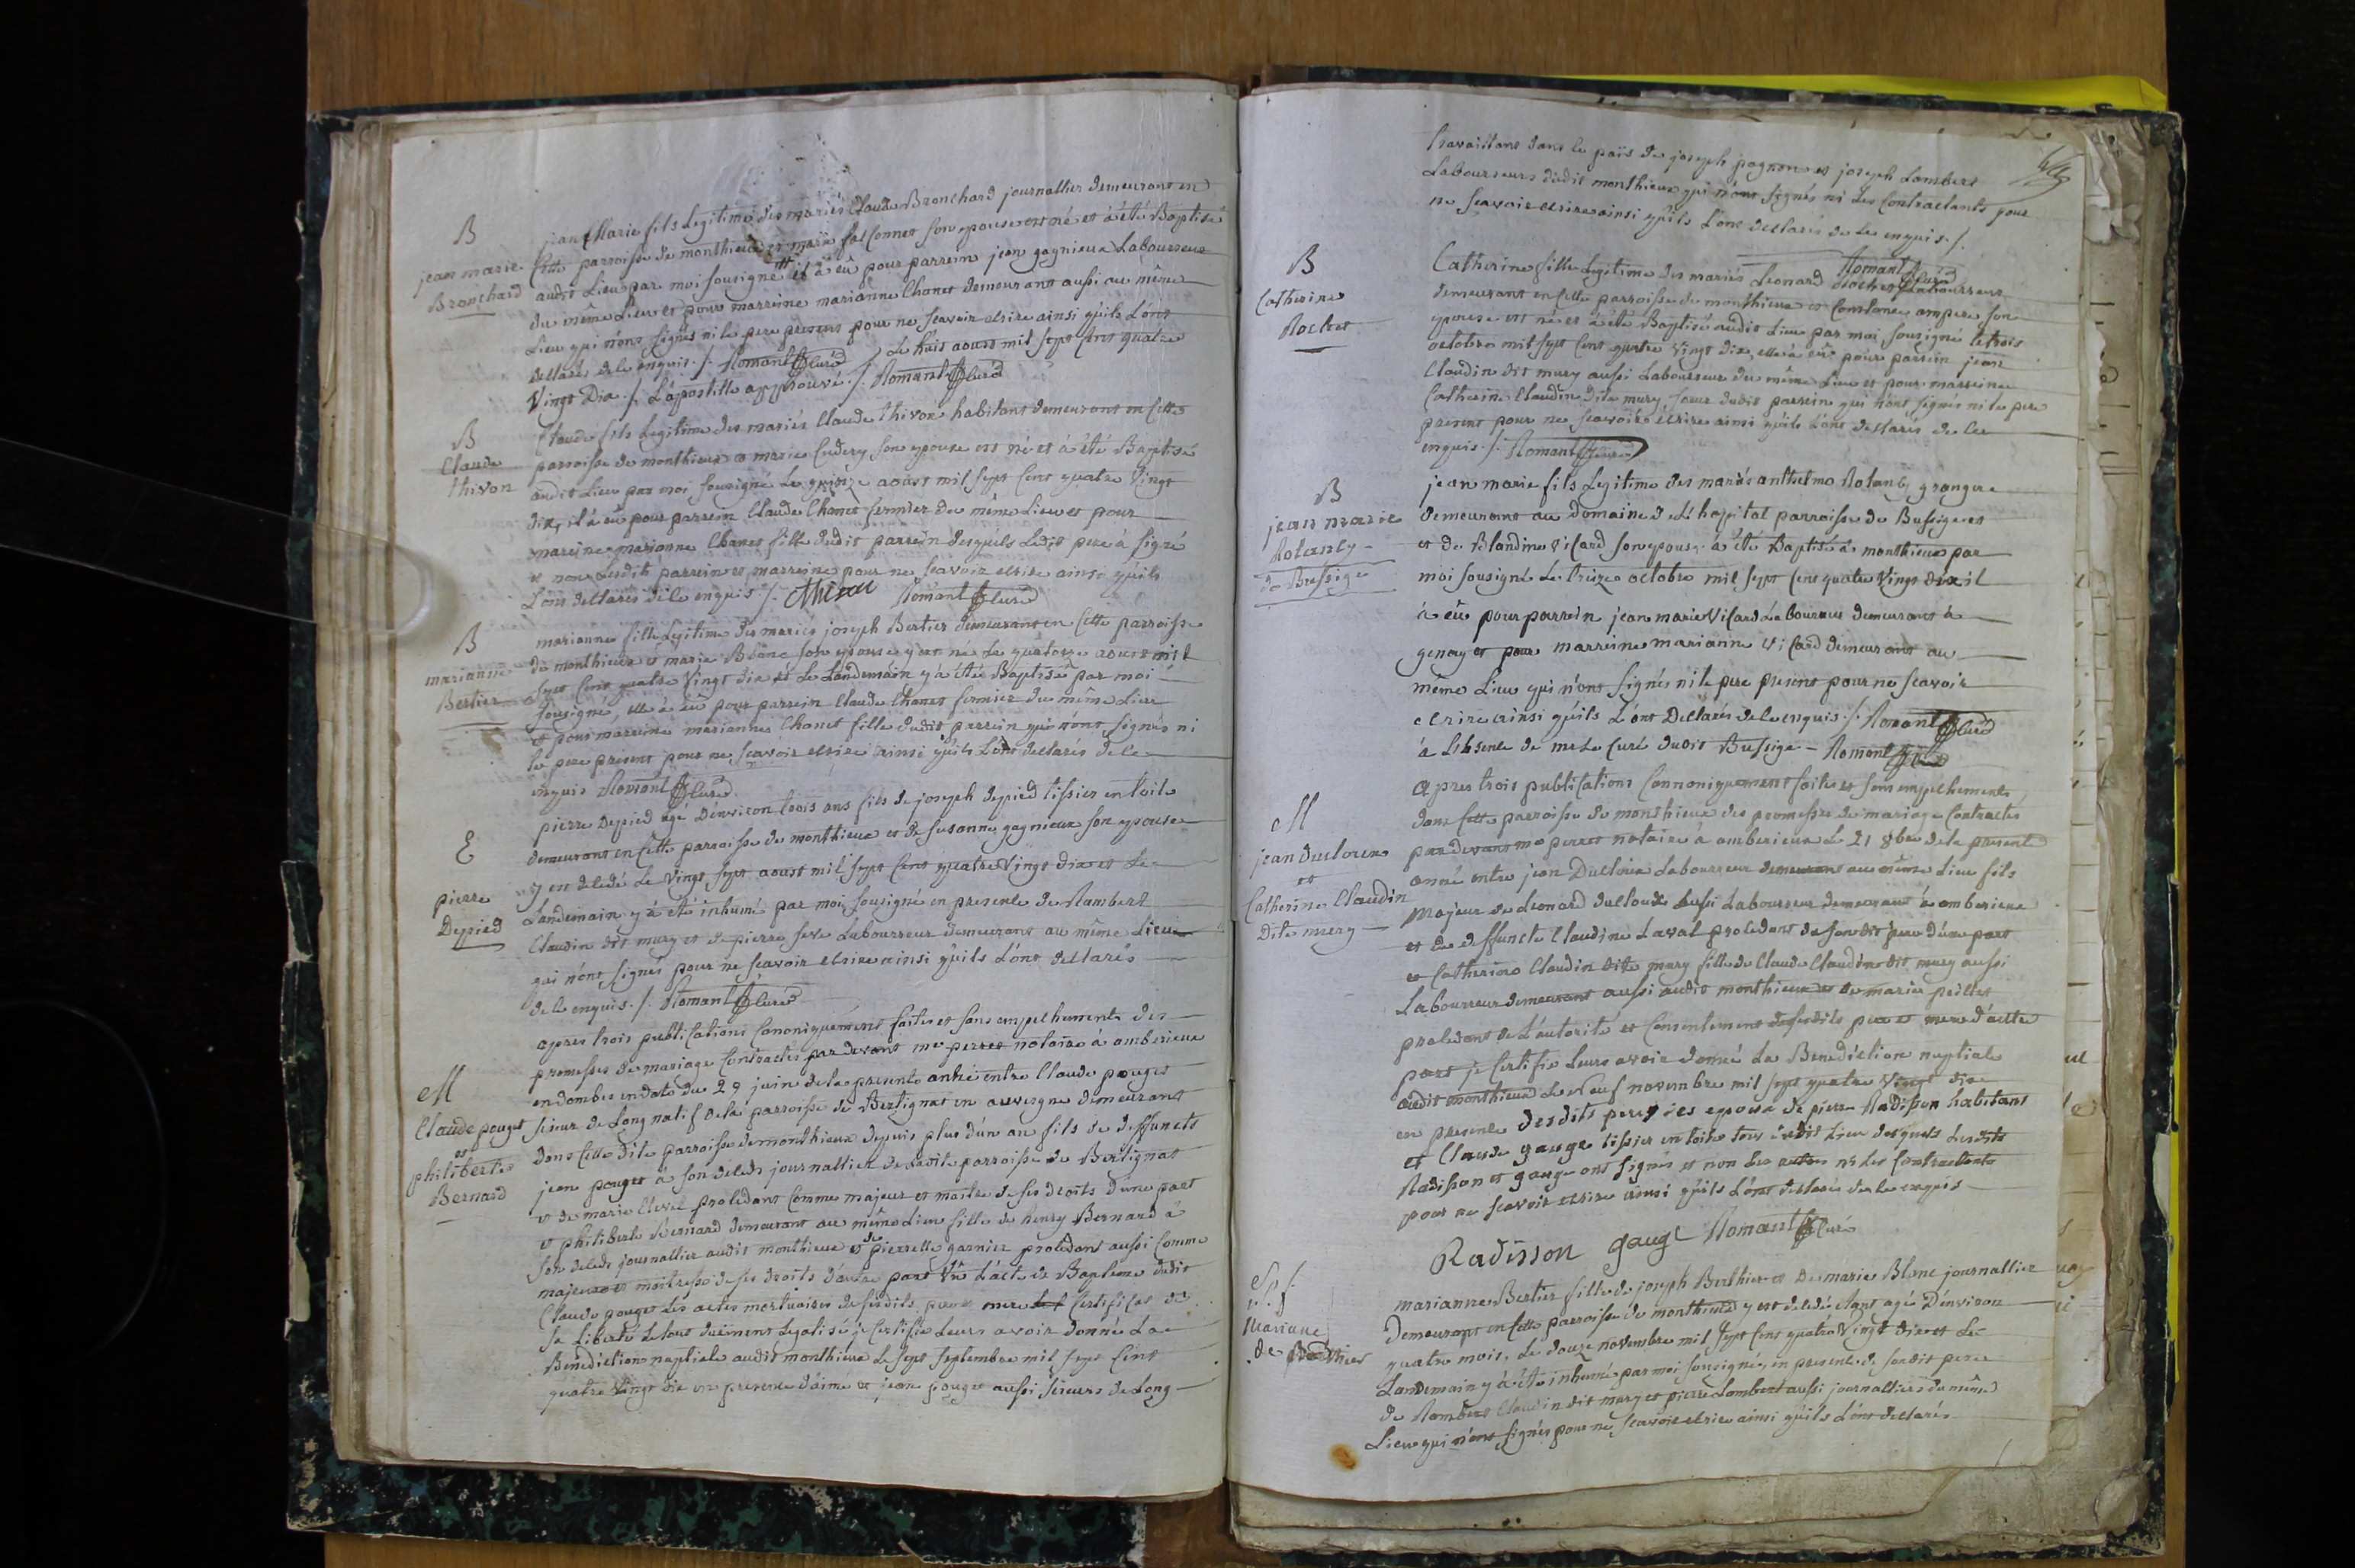 B
jean marie
Bronchard
jean Marie fils Legitime des mariés Claude Bronchard journallier demeurant en
cette parroisse de monthieux et marie falconnet son epouse est né et à été Baptisé
audit Lieu par moi sousigné il à eû pour parrein jean gagnieux Labourreur
du même Lieu et pour marreine marianne Chanet demeurant aussi au même
Lieu qui n'ont signés ni le pere present pour ne sçavoir ecrire ainsi qu'ils L'ont
declarés de ce enquis ./. Romant Curé / Le huit aoust mil sept Cent quatre
Vingt Dix ./. L'apostille approuvé ./. Romant Curé
B
Claude
thivon
Claude fils Legitime des mariés Claude thivon habitant demeurant en cette
parroisse de monthieux et marie Cudery son epouse est né et à été Baptisé
audit Lieu par moi sousigné Le quinze aoust mil sept Cent quatre Vingt
dix, il à eû pour parrein Claude Chanet fermier du même Lieu et pour
marreine marianne Chanet fille dudit parrein desquels Ledit pere à signé
et non Lesdits parrein et marreine pour ne sçavoir ecrire ainsi qu'ils
L'ont declarés de ce enquis ./. thivon Romant Curé
B
marianne
Bertier
marianne fille Legitime des mariés joseph Bertier demeurant en cette parroisse
de monthieux et marie Blanc son epouse y est né Le quatorze aoust mil
sept Cent quatre Vingt dix et Le Landemain y à été Baptisé par moi
sousigné, elle à eû pour parrein Claude Chanet fermier du même Lieu
et pour marreine marianne Chanet fille dudit parrein qui n'ont signés ni
le pere present pour ne sçavoir ecrire ainsi qu'ils L'ont declarés de ce
enquis Romant Curé
E
pierre
Depied
pierre Depied agé D'environ trois ans fils de joseph depied tissier en toile
demeurant en cette parroisse de monthieux et de susanne gagnieux son epouse
y est decedé Le Vingt sept aoust mil sept Cent quatre Vingt dix et Le
Landemain y à été inhumé par moi sousigné en presence de Rambert
Claudin dit mury et de pierre seve Labourreur demeurant au même Lieu
qui n'ont signés pour ne sçavoir ecrire ainsi qu'ils L'ont declarés
de ce enquis ./. Romant Curé
M
Claude pouget
et
philiberte
Bernard
apres trois publications Canoniquement faites et sans empechements des
promesses de mariage Contractés pardevant me perret notaire à amberieux
en dombes en date du 29 juin de la presente année entre Claude pouget
scieur de Long natif de la parroisse de Bertignat en auvergne demeurant
dans cette dite parroisse de monthieux depuis plus d'un an fils de deffuncts
jean pouget à son decede journallier de Ladite parroisse de Bertignat
et de marie Clevel procedant Comme majeur et maitre de ses droits d'une part
et philiberte Bernard demeurant au même Lieu fille de henry Bernard à
son decede journallier audit monthieux et de pierrette garnier procedant aussi Comme
majeure et maitresse de ses droits d'autre part Vû L'acte de Baptême dudit
Claude pouget Les actes mortuaires de sesdits pere et mere Certificat de
sa Liberté Le tout duëment Legalisé je Certifie Leurs avoir donnée La
Bénédiction nuptiale audit monthieux Le sept septembre mil sept Cent
quatre Vingt dix en presence d'aimé et jean pouget aussi scieurs de Long
travaillant dans le païs de joseph pagnon et joseph Lambert
Labourreurs dudit monthieux qui n'ont signés ni Les Contractants pour
ne sçavoir ecrire ainsi qu'ils L'ont declarés de ce enquis ./.
Romant Curé
B
Catherine
Rochet
Catherine fille Legitime des mariés Leonard Rochet Labourreur
demeurant en cette parroisse de monthieux et Constance ampere son
epouse est né et à été Baptisé audit Lieu par moi sousigné le trois
octobre mil sept Cent quatre Vingt dix, elle à eû pour parrein jean
Claudin dit mury aussi Labourreur du même Lieu et pour marreine
Catherine Claudin dite mury soeur dudit parrein qui n'ont signés ni le pere
present pour ne sçavoir ecrire ainsi qu'ils L'ont declarés de ce
enquis ./. Romant Curé
B
jean marie
Rolandy
de Bussige
jean marie fils Legitime des mariés anthelme Rolandy granger
demeurant au Domaine de L'hopital parroisse de Bussige et
et de Blandine Vicard son epouse à été Baptisé à monthieux par
moi sousigné Le treize octobre mil sept Cent quatre Vingt dix il
à eû pour parrein jean marie Vicard Laboureur demeurant à
genay et pour marreine marianne Vicard demeurant au
même Lieu qui n'ont signés ni le pere present pour ne sçavoir
ecrire ainsi qu'ils L'ont Declarés de ce enquis ./. Romant Curé
à L'absence de me Le Curé dudit Bussige - Romant Curé
M
jean ducloux
et
Catherine Claudin
Dite mury
apres trois publications Cannoniquement faites et sans empechements
dans cette parroisse de monthieux des promesses de mariage Contractés
pardevant me perret notaire à amberieux Le 21 8bre de la presente
année entre jean Ducloux Labourreur demeurant au même Lieu fils
majeur de Leonard ducloux aussi Labourreur demeurant à amberieux
et de deffuncte Claudine Laval procedant de sondit pere d'une part
et Catherine Claudin dite mury fille de Claude Claudin dit mury aussi
Labourreur demeurant aussi audit monthieux et de marie peillet
procedant de L'autorité et Consentement de sesdits pere et mere d'autre
part, je Certifie Leurs avoir donné La Bénédiction nuptiale
audit monthieux Le neuf novembre mil sept quatre Vingt dix
en presence desdits peres es epoux de pierre Radisson habitant
et Claude gauge tissier en toile tous dudit Lieu desquels Lesdits
Radisson et gauge ont signés et non Les autres ni Les Contractants
pour ne sçavoir ecrire ainsi qu'ils L'ont declarés de ce enquis
Radisson gauge Romant Curé
Mariane
marianne Bertier fille de joseph Berthier et de marie Blanc journallier
Demeurant en cette parroisse de monthieux y est decedé etant agé D'environ
quatre mois, Le douze novembre mil sept Cent quatre Vingt dix et Le
Landemain y à été inhumé par moi sousigné, en presence de sondit pere
de Rambert Claudin dit mury et pierre Lambert aussi journalliers du même
Lieu qui n'ont signés pour ne sçavoir ecrire ainsi qu'ils L'ont declarés